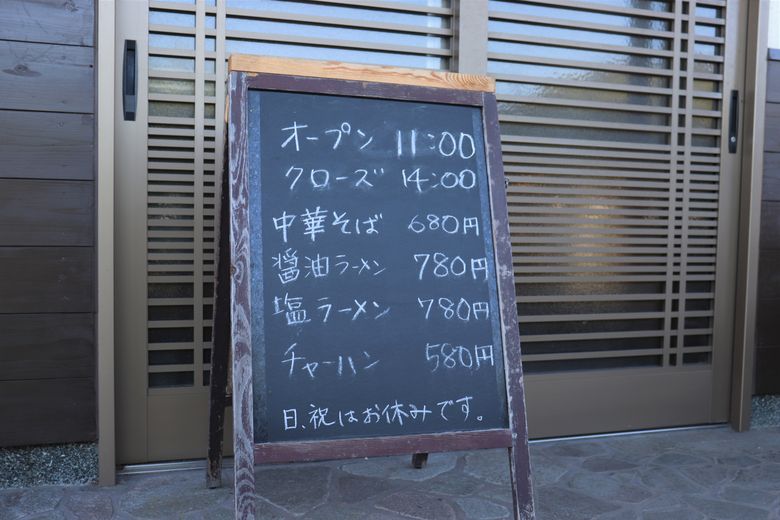 オープン 11:00
クローズ 14:00
中華そば 680円
醤油ラーメン 780円
塩ラーメン 780円
チャーハン 580円
日、祝はお休みです。